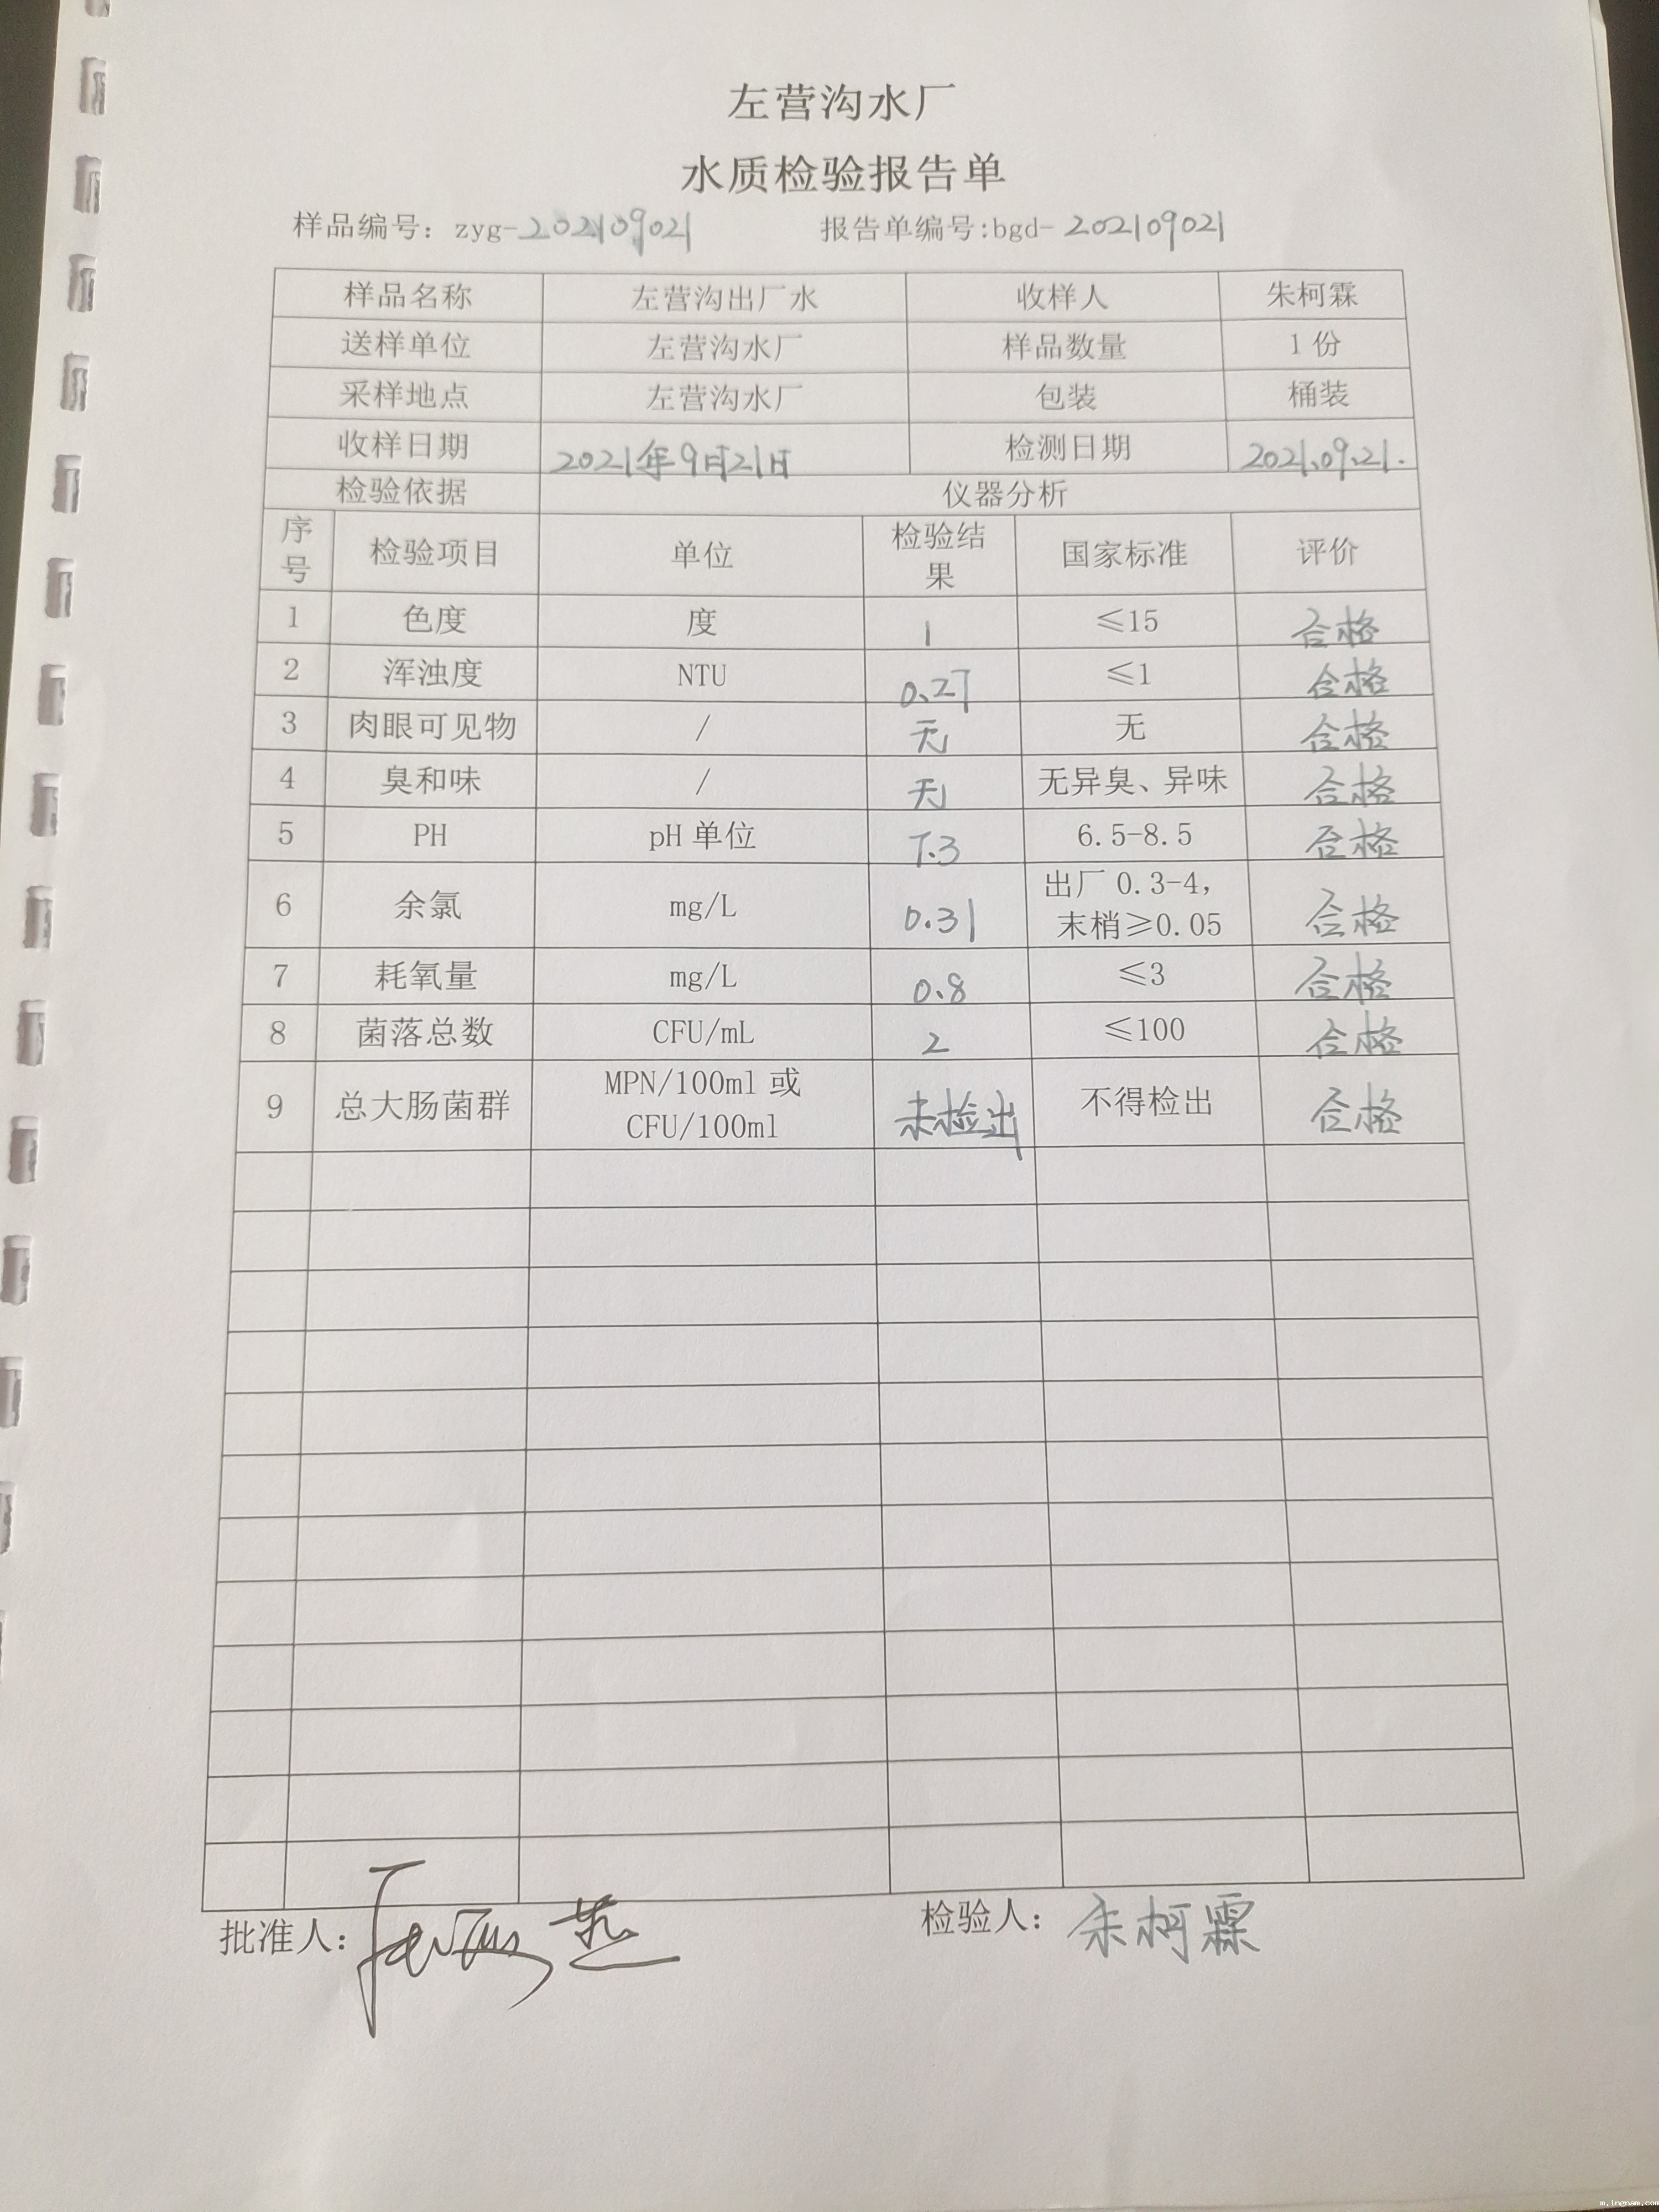 左营沟水厂
水质检验报告单
样品编号：zyg-202109021 报告单编号:bgd-202109021
样品名称 左营沟出厂水 收样人 朱柯霖
送样单位 左营沟水厂 样品数量 1份
采样地点 左营沟水厂 包装 桶装
收样日期 2021年9月21日 检测日期 2021.09.21.
检验依据 仪器分析
序号 检验项目 单位 检验结果 国家标准 评价
1 色度 度 1 ≤15 合格
2 浑浊度 NTU 0.27 ≤1 合格
3 肉眼可见物 / 无 无 合格
4 臭和味 / 无 无异臭、异味 合格
5 PH pH单位 7.3 6.5-8.5 合格
6 余氯 mg/L 0.31 出厂 0.3-4，末梢≥0.05 合格
7 耗氧量 mg/L 0.8 ≤3 合格
8 菌落总数 CFU/mL 2 ≤100 合格
9 总大肠菌群 MPN/100ml 或 CFU/100ml 未检出 不得检出 合格
批准人： 检验人：朱柯霖
m.lngnom.com